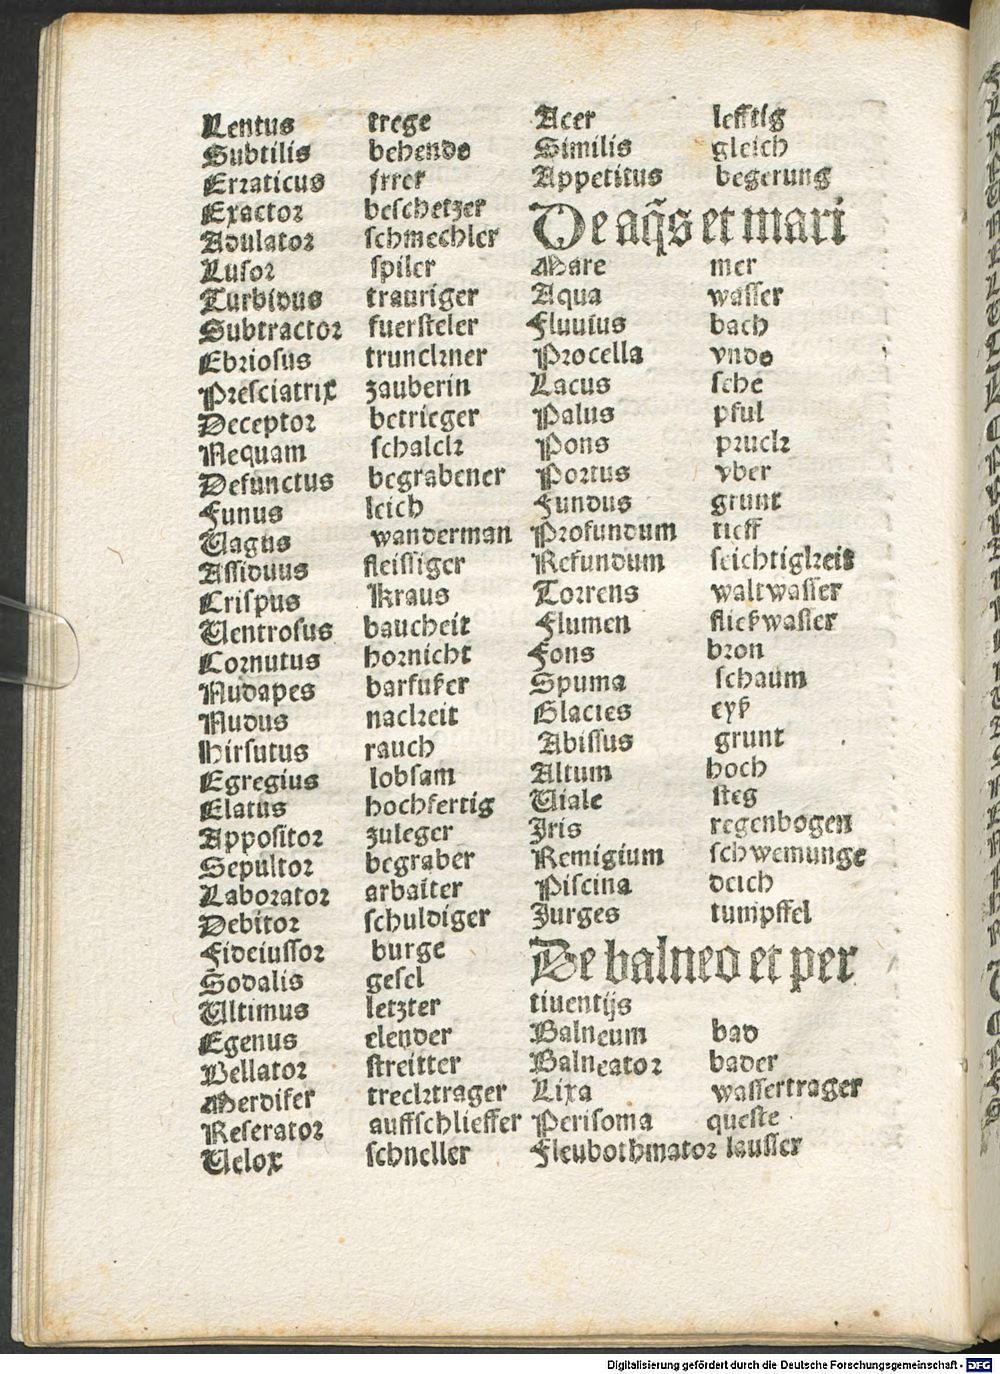 Lentus trege
Subtilis behende
Erraticus jrrer
Exactor beschetzer
Adulator schmechler
Lusor spiler
Turbidus trauriger
Subtractor fuersteler
Ebriosus trunckner
Presciatrix zauberin
Deceptor betrieger
Nequam schalck
Defunctus begrabener
Funus leich
Vagus wanderman
Assiduus fleissiger
Crispus kraus
Ventrosus baucheit
Cornutus hornicht
Nudapes barfußer
Nudus nackeit
Hirsutus rauch
Egregius lobsam
Elatus hochfertig
Appositor zuleger
Sepultor begraber
Laborator arbaiter
Debitor schuldiger
Fideiussor burge
Sodalis gesel
Ultimus letzter
Egenus elender
Bellator streitter
Merdifer trecktrager
Reserator auffschlieffer
Velox schneller
Acer lefftig
Similis gleich
Appetitus begerung
De aq̃s et mari
Mare mer
Aqua wasser
Fluuius bach
Procella vnde
Lacus sche
Palus pful
Pons pruck
Portus vber
Fundus grunt
Profundum tieff
Refundum seichtigkeit
Torrens waltwasser
Flumen fließwasser
Fons bron
Spuma schaum
Glacies eyß
Abissus grunt
Altum hoch
Viale steg
Jris regenbogen
Remigium schwemunge
Piscina deich
Jurges tumpffel
De balneo et per
tiuentijs
Balneum bad
Balneator bader
Lixa wassertrager
Perisoma queste
Fleubothmator lausser
Digitalisierung gefördert durch die Deutsche Forschungsgemeinschaft - DFG